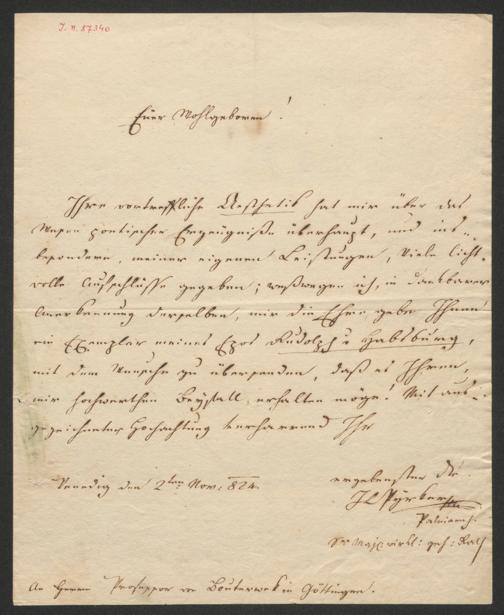 I. N. 87340
Euer Wohlgeboren!
Ihre vortreffliche Aesthetik hat mir über das
Wesen poetischer Erzeugnisse überhaupt, und ins-
besondere, meiner eigenen Leistungen, viele licht-
volle Aufschlüsse gegeben; weßwegen ich, in dankbarer
Anerkennung derselben, mir die Ehre gebe Ihnen
ein Exemplar meines Epos Rudolph v Habsburg,
mit dem Wunsche zu übersenden, daß es Ihren,
mir hochwerthen Beyfall erhalten möge! Mit aus-
gezeichneter Hochachtung verharrend Ihr
Venedig den 2ten Nov: 824.
ergebenster
JLPyrker
Patriarch.
Sr Maj: wirkl: geh: Rath
An Herrn Professor Bouterwek in Göttingen.